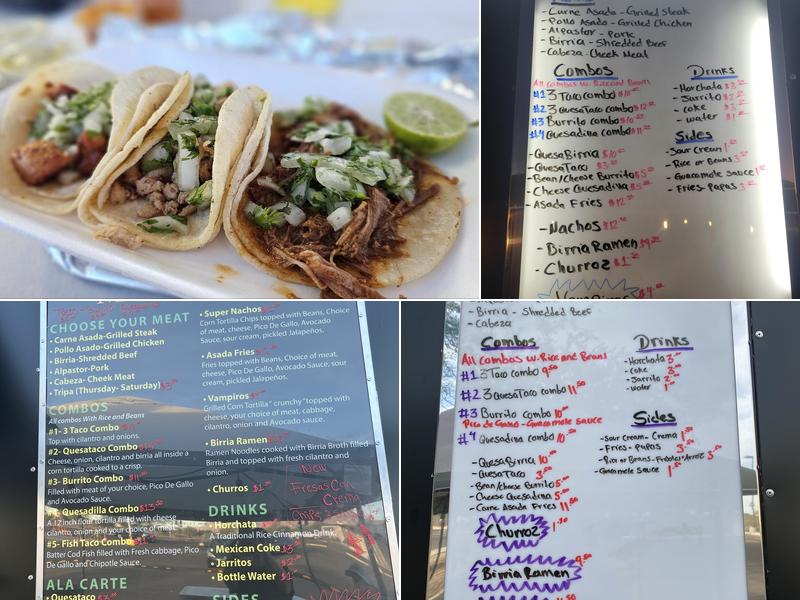 - Carne Asada - Grilled Steak
- Pollo Asado - Grilled Chicken
- Alpastor - Pork
- Birria - Shredded Beef
- Cabeza - Cheek Meat
Combos
All combos w. Rice and Beans
#1 3 Taco Combo
#2 3 QuesaTaco combo $12.00
#3 Burrito combo $10
#4 Quesadilla combo
- QuesaBirria $10
- QuesaTaco $3
- Bean/Cheese Burrito $5
- Cheese Quesadilla $5
- Asada Fries $12
- Nachos
- Birria Ramen
- Churroz
Drinks
- Horchata $3
- Jarrito
- coke
- water
Sides
- Sour Cream
- Rice or Beans
- Guacamole Sauce
- Fries - Papas
CHOOSE YOUR MEAT
• Carne Asada-Grilled Steak
• Pollo Asado-Grilled Chicken
• Birria-Shredded Beef
• Alpastor-Pork
• Cabeza- Cheek Meat
• Tripa (Thursday- Saturday)
COMBOS
All combos With Rice and Beans
#1- 3 Taco Combo
Top with cilantro and onions.
#2- Quesataco Combo
Cheese, onion, cilantro and birria all inside a
corn tortilla cooked to a crisp.
#3- Burrito Combo
Filled with meat of your choice, Pico De Gallo
and Avocado Sauce.
#4- Quesadilla Combo $13
A 12 inch flour tortilla filled with cheese
cilantro, onion and your choice of meat.
#5- Fish Taco Combo
Batter Cod Fish filled with Fresh cabbage, Pico
De Gallo and Chipotle Sauce.
ALA CARTE
• Quesataco
• Super Nachos
Corn Tortilla Chips topped with Beans, Choice
of meat, cheese, Pico De Gallo, Avocado
Sauce, sour cream, pickled Jalapeños.
• Asada Fries
Fries topped with Beans, Choice of meat,
cheese, Pico De Gallo, Avocado Sauce, sour
cream, pickled Jalapeños.
• Vampiros
Grilled Corn Tortilla" crunchy"topped with
cheese, your choice of meat, cabbage,
cilantro, onion and Avocado sauce.
• Birria Ramen
Ramen Noodles cooked with Birria Broth filled
Birria and topped with fresh cilantro and
onion.
• Churros
New
Fresas Con
Crema
DRINKS
• Horchata
A Traditional Rice Cinnamon Drink
• Mexican Coke
• Jarritos
• Bottle Water
SIDES
- Birria - Shredded Beef
- Cabeza
Combos
All combos w. Rice and Beans
#1 3 Taco combo 9.50
#2 3 QuesaTaco combo 11.50
#3 Burrito combo 10
Pico de Gallo - Guacamole sauce
#4 Quesadilla combo 10
- QuesaBirria 10
- QuesaTaco 3
- Bean/Cheese Burrito 5
- Cheese Quesadilla 5
- Carne Asada Fries 11.50
Churroz
Birria Ramen
Drinks
- Horchata 3
- Coke 3
- Jarrito 2
- water 1
Sides
- Sour Cream - Crema
- Fries - Papas
- Rice or Beans - Frijoles/Arroz
- Guacamole Sauce